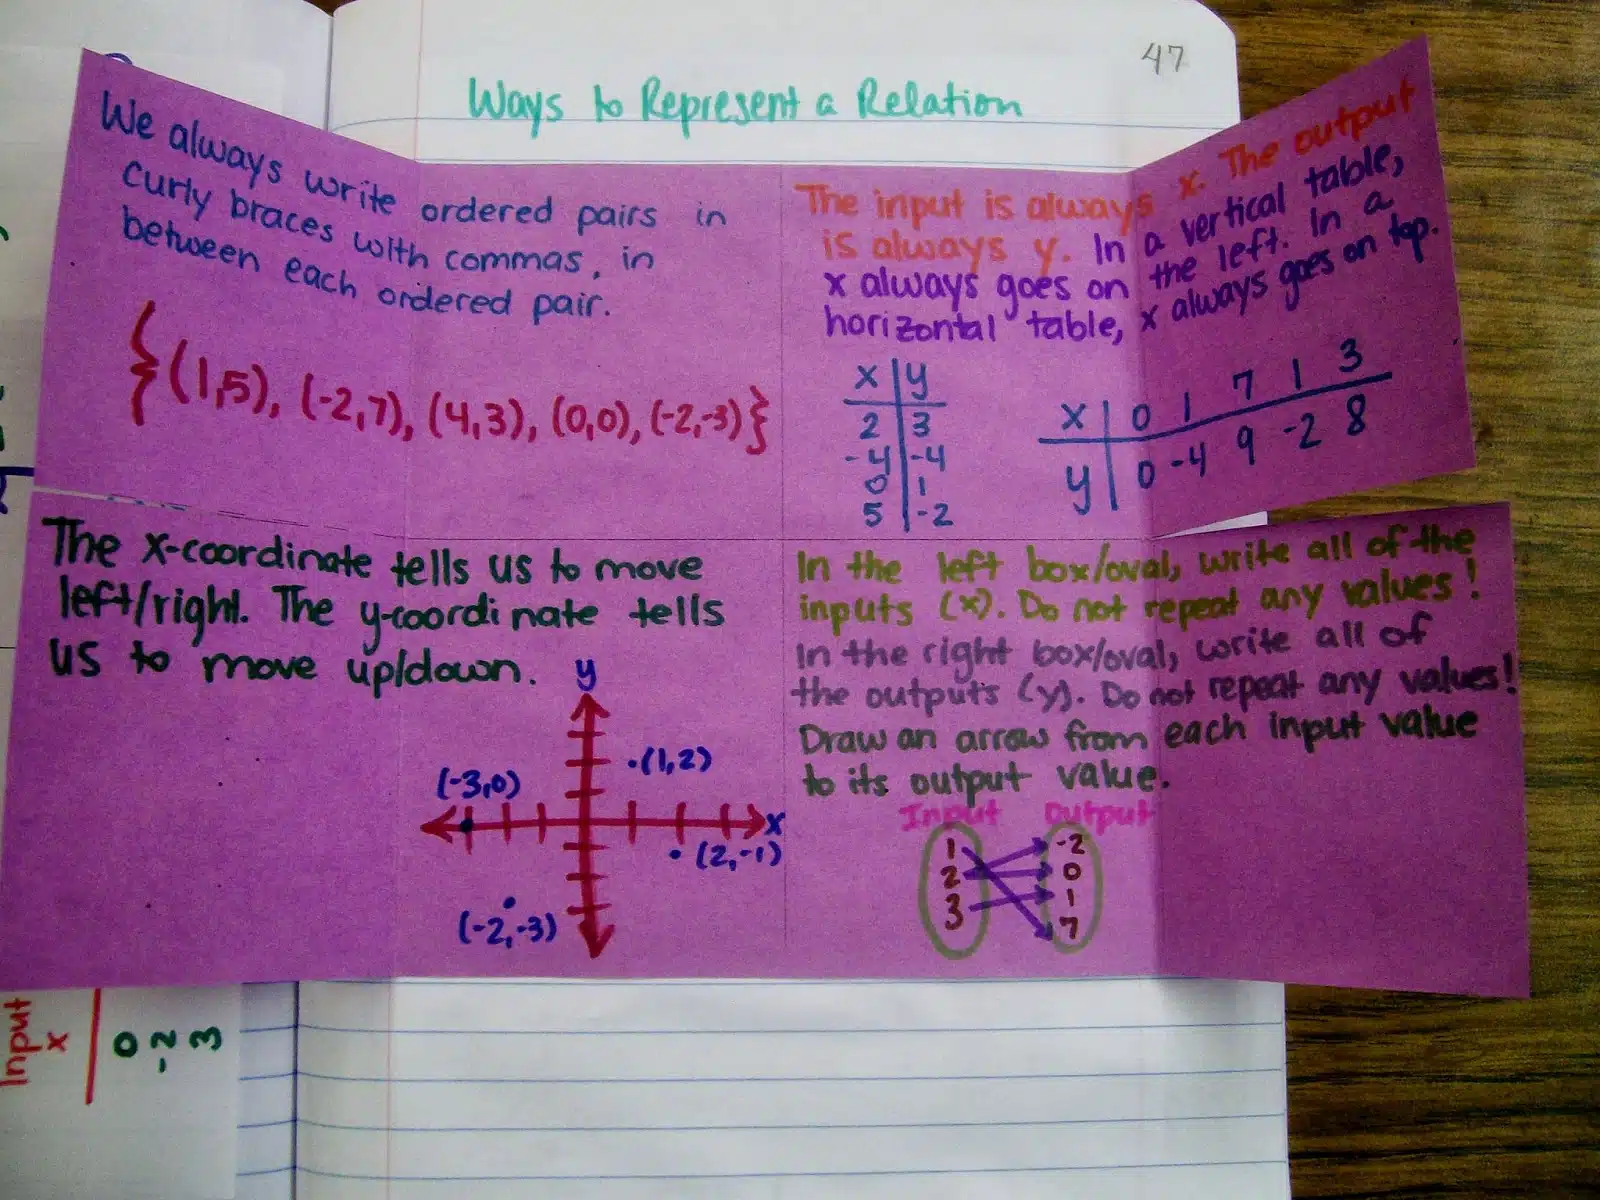 47
Ways to Represent a Relation
We always write ordered pairs in
curly braces with commas, in
between each ordered pair.
{(1,5), (-2,7), (4,3), (0,0), (-2,-3)}
The input is always x. The output
is always y. In a vertical table,
x always goes on the left. In a
horizontal table, x always goes on top.
x | y
2 | 3
-4 | -4
0 | 1
5 | -2
x | 0 1 7 1 3
y | 0 -4 9 -2 8
The x-coordinate tells us to move
left/right. The y-coordinate tells
us to move up/down.
y
(1,2)
(-3,0)
x
(2,-1)
(-2,-3)
In the left box/oval, write all of the
inputs (x). Do not repeat any values!
In the right box/oval, write all of
the outputs (y). Do not repeat any values!
Draw an arrow from each input value
to its output value.
Input Output
1 -2
2 0
3 1
7
Input
x
0
-2
3